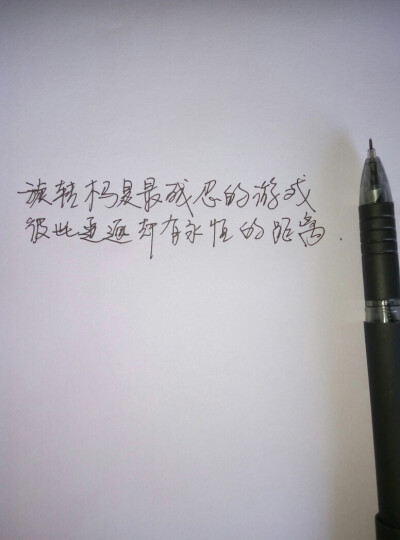 旋转木马是最残忍的游戏
彼此追逐却有永恒的距离.